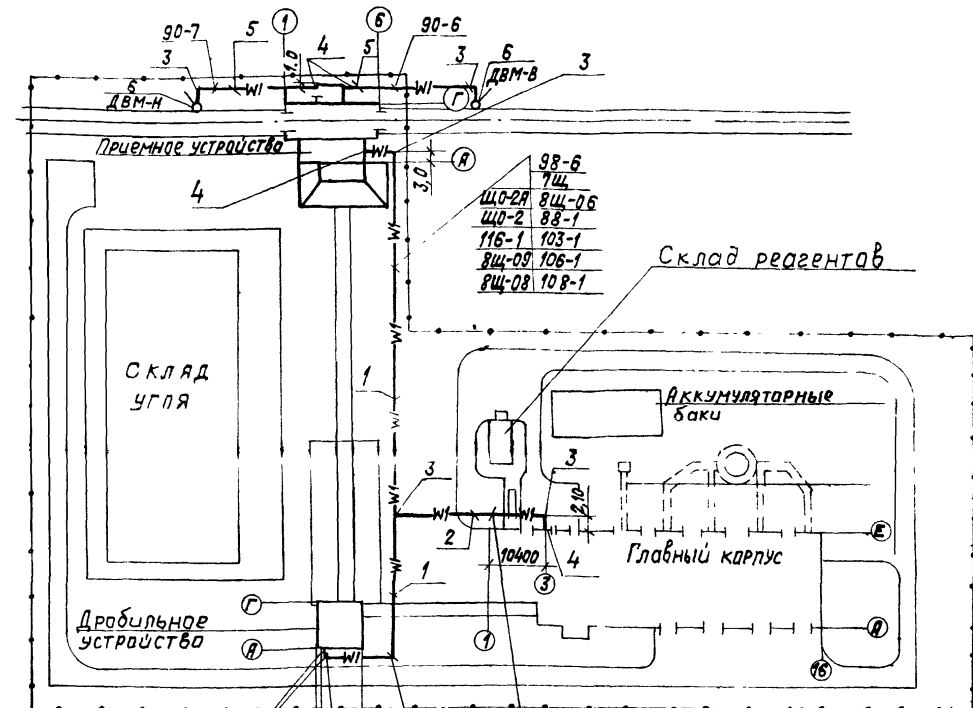 90-7
5
1
6
4
5
90-6
3
1.0
3
6
ДВМ-В
3
6
ДВМ-Н
W1
W1
Г
Приемное устройства
W1
А
4
3,0
98-6
7Щ
ЩО-2А 8Щ-06
ЩО-2 88-1
116-1 103-1
8Щ-09 106-1
8Щ-08 108-1
W1
Склад реагентов
W1
Склад
угля
1
Аккумуляторные
баки
W1
3
3
W1
2,10
W1
W1
2
10400
4
Главный корпус
Е
3
W1
1
Г
Дробильное
устройства
А
1
А
W1
16